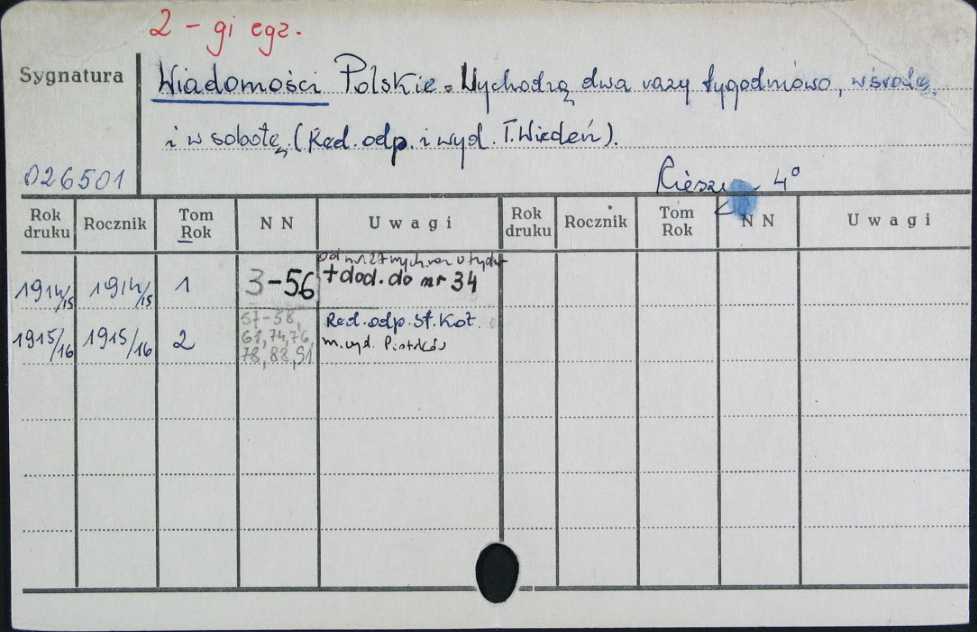 2-gi egz.
Sygnatura
Wiadomości Polskie. Wychodzą dwa razy tygodniowo, w środę
i w sobotę (Red. odp. i wyd. T. Wiedeń).
026501
4°
Rok druku Rocznik Tom Rok N N Uwagi Rok druku Rocznik Tom Rok N N Uwagi
od nr. 27
1914/15 1914/15 1 3-56 + dod. do nr 34
1915/16 1915/16 2 57-58, Red. odp. St. Kot
74,76, m. wyd. Piotrków
78,88,91